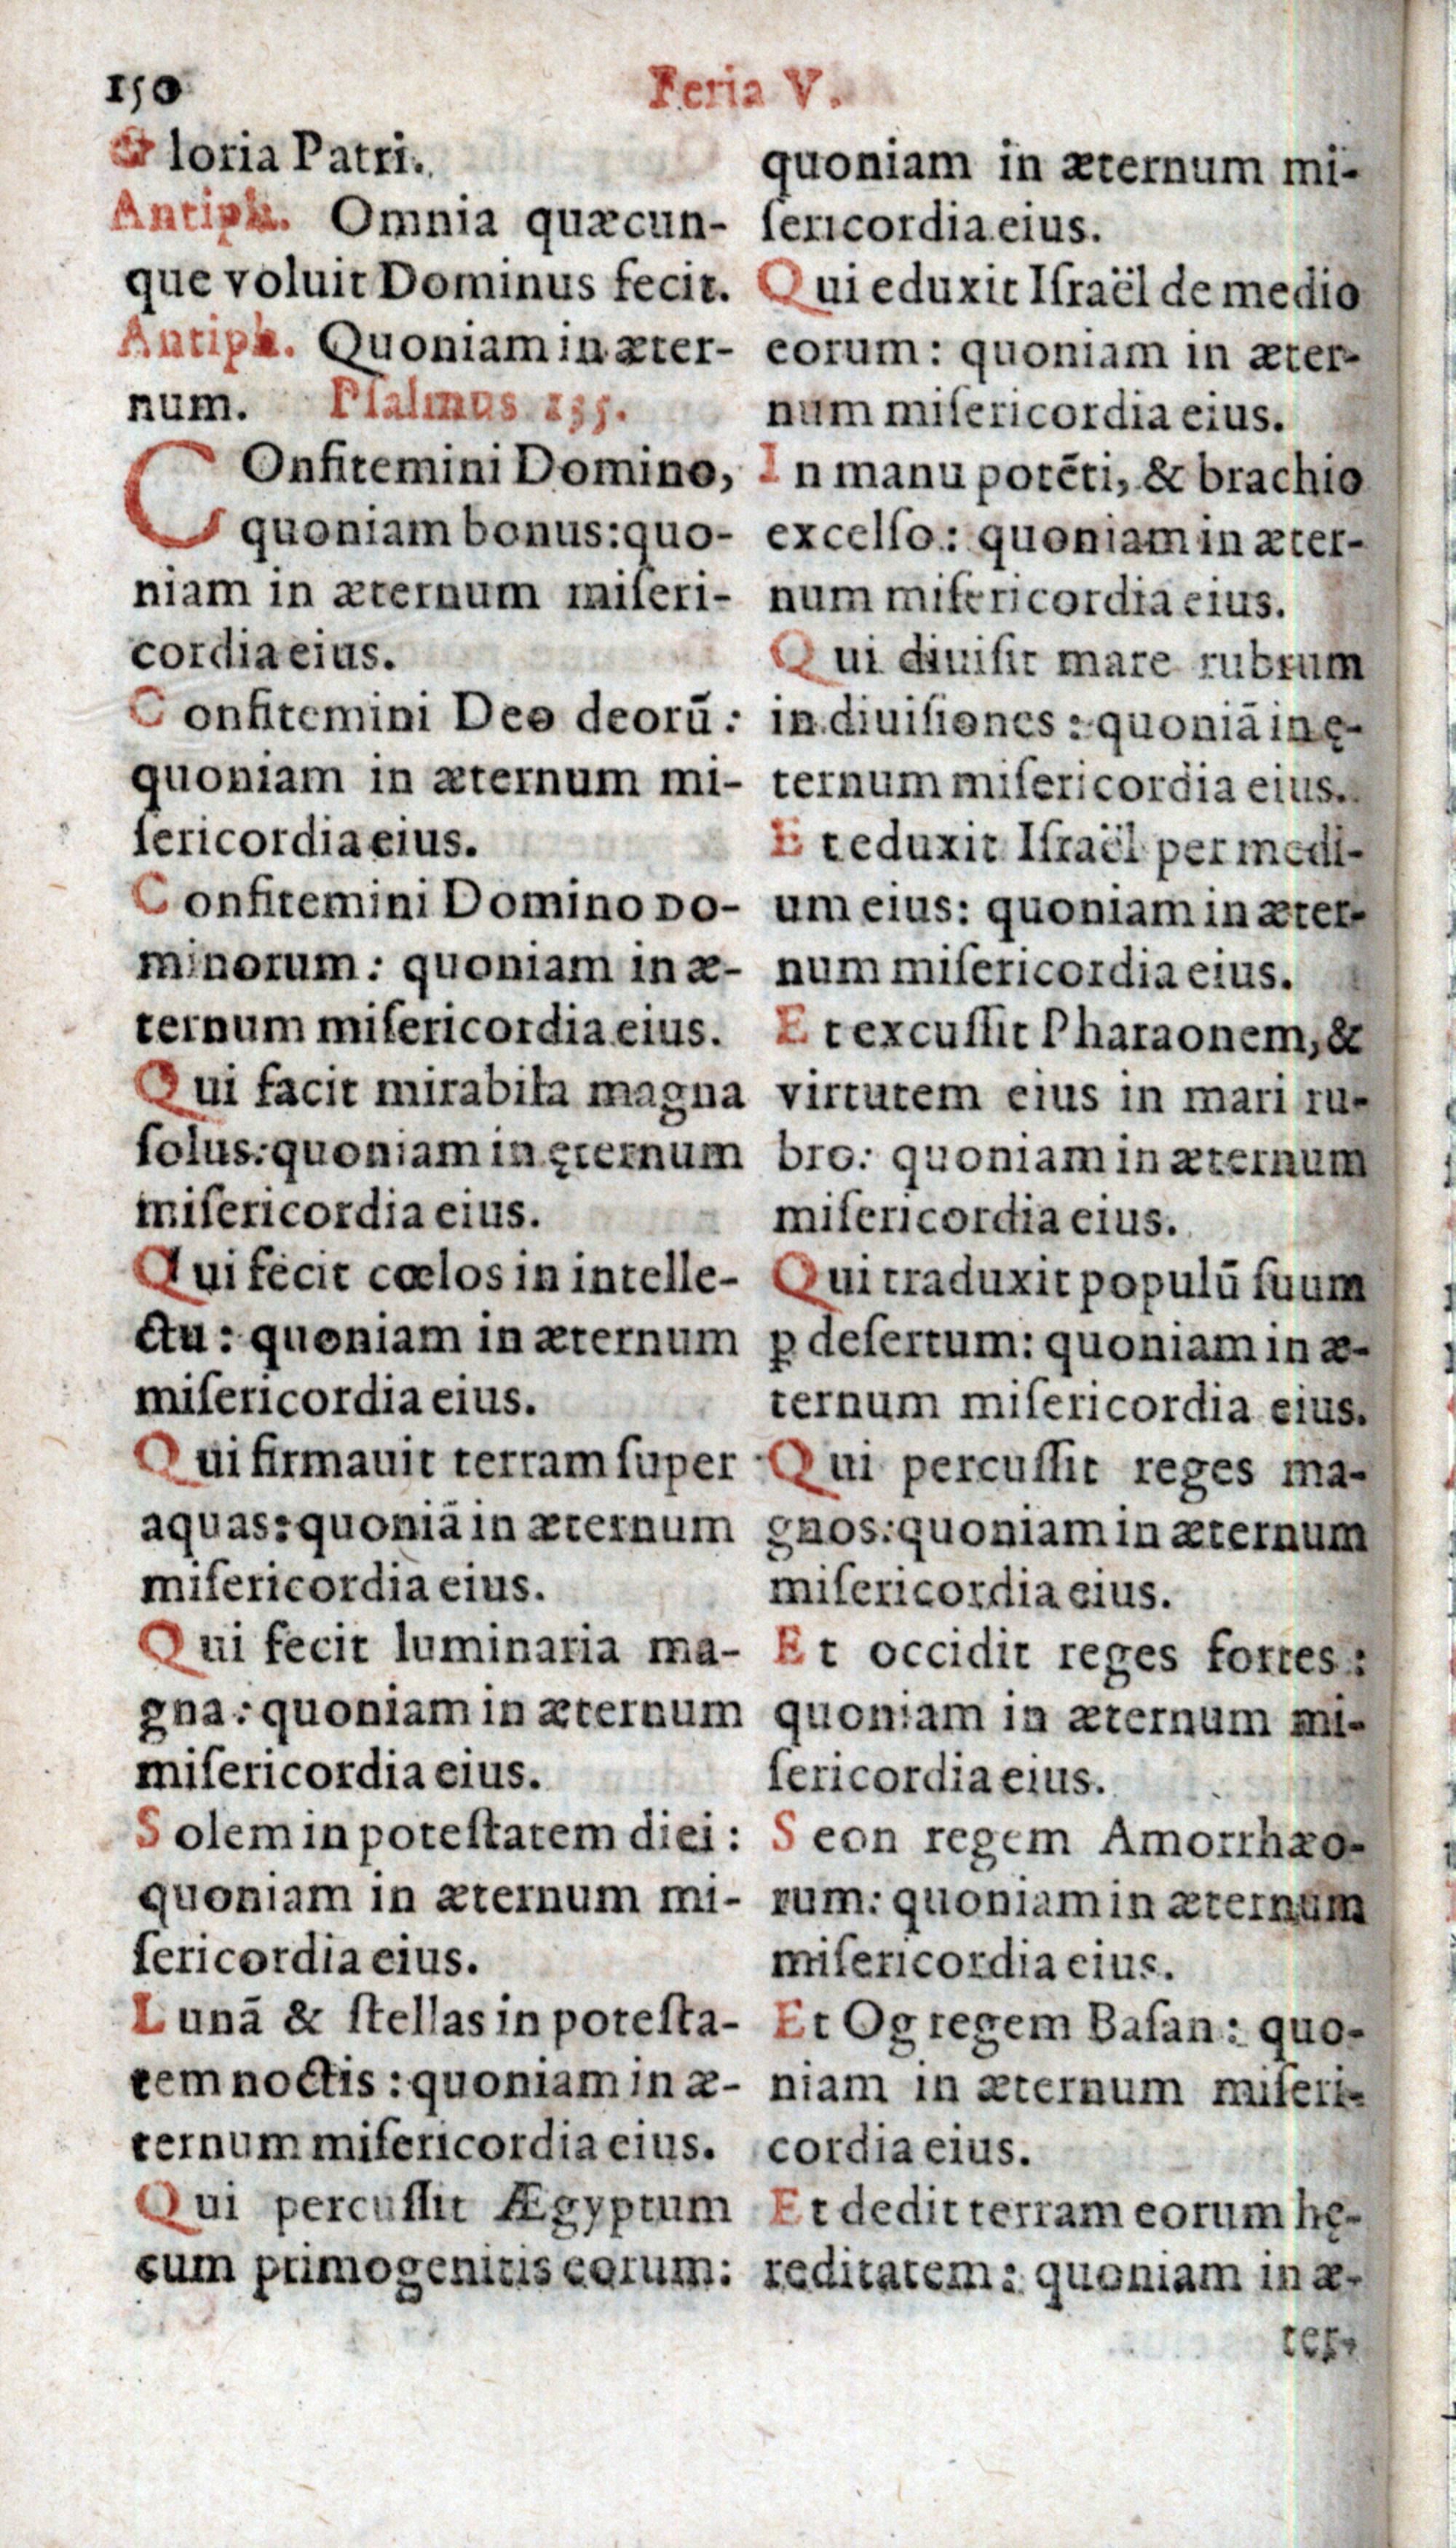 150
Feria V.
Gloria Patri.
Antiph. Omnia quæcun-
que voluit Dominus fecit.
Antiph. Quoniam in æter-
num. Pſalmus 135.
COnfitemini Domino,
quoniam bonus: quo-
niam in æternum miſeri-
cordia eius.
Confitemini Deo deorū:
quoniam in æternum mi-
ſericordia eius.
Confitemini Domino do-
minorum: quoniam in æ-
ternum miſericordia eius.
Qui facit mirabila magna
ſolus: quoniam in ęternum
miſericordia eius.
Qui fecit cœlos in intelle-
ctu: quoniam in æternum
miſericordia eius.
Qui firmauit terram ſuper
aquas: quoniā in æternum
miſericordia eius.
Qui fecit luminaria ma-
gna: quoniam in æternum
miſericordia eius.
Solem in poteſtatem diei:
quoniam in æternum mi-
ſericordia eius.
Lunā & ſtellas in poteſta-
tem noctis: quoniam in æ-
ternum miſericordia eius.
Qui percuſſit Ægyptum
cum primogenitis eorum:
quoniam in æternum mi-
ſericordia eius.
Qui eduxit Iſraël de medio
eorum: quoniam in æter-
num miſericordia eius.
In manu potēti, & brachio
excelſo: quoniam in æter-
num miſericordia eius.
Qui diuiſit mare rubrum
in diuiſiones: quoniā in ę-
ternum miſericordia eius.
Et eduxit Iſraël per medi-
um eius: quoniam in æter-
num miſericordia eius.
Et excuſſit Pharaonem, &
virtutem eius in mari ru-
bro: quoniam in æternum
miſericordia eius.
Qui traduxit populū ſuum
ꝑ deſertum: quoniam in æ-
ternum miſericordia eius.
Qui percuſſit reges ma-
gnos: quoniam in æternum
miſericordia eius.
Et occidit reges fortes:
quoniam in æternum mi-
ſericordia eius.
Seon regem Amorrhæo-
rum: quoniam in æternum
miſericordia eius.
Et Og regem Baſan: quo-
niam in æternum miſeri-
cordia eius.
Et dedit terram eorum hę-
reditatem: quoniam in æ-
ter-